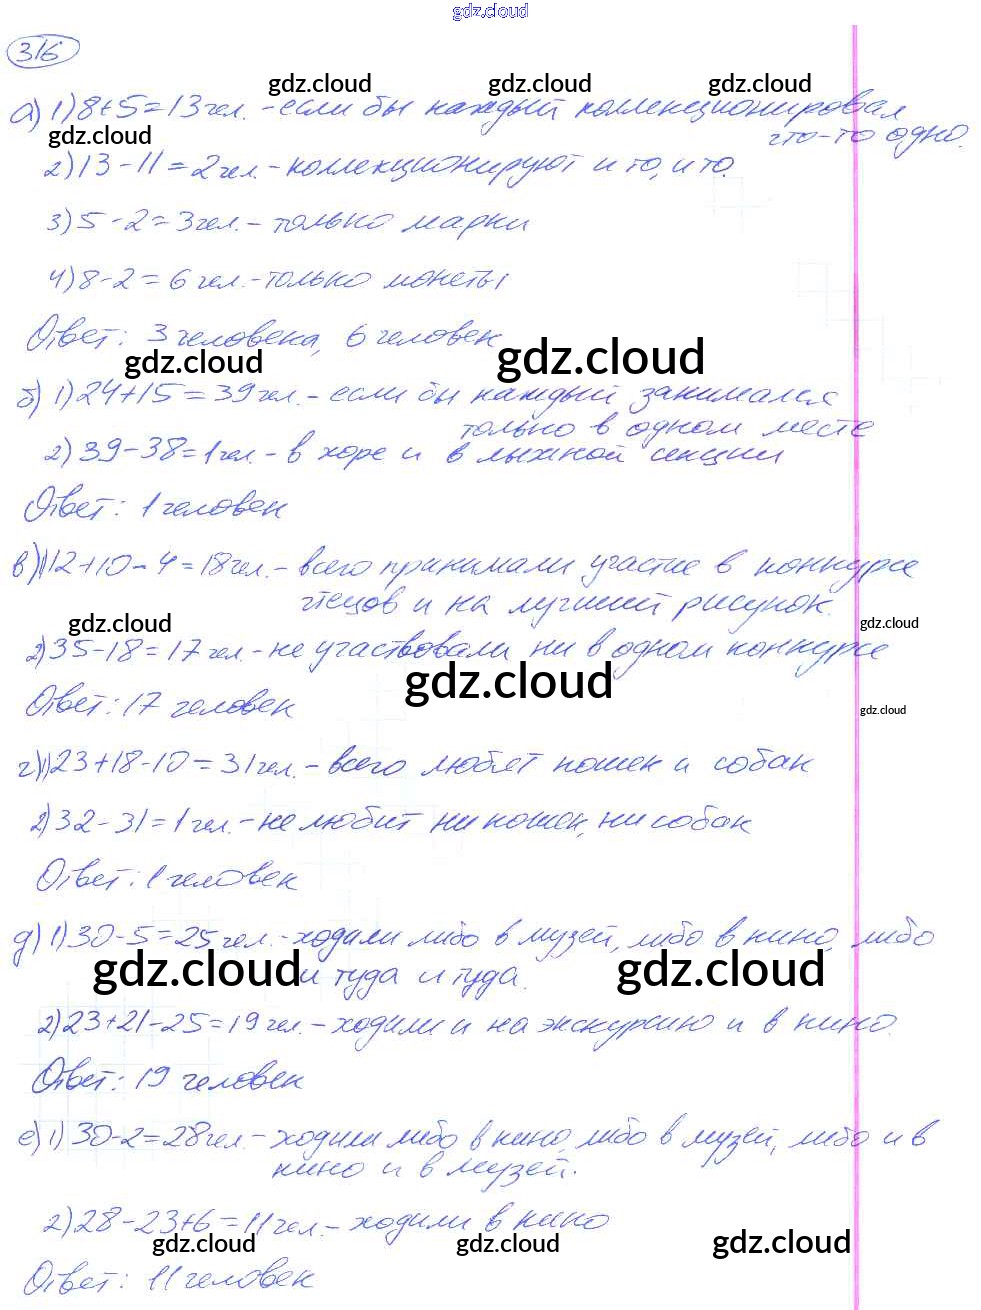 gdz.cloud
316
gdz.cloud gdz.cloud gdz.cloud
а) 1) 8+5=13 чел. - если бы каждый коллекционировал
что-то одно.
gdz.cloud
2) 13-11=2 чел. - коллекционируют и то, и то.
3) 5-2=3 чел. - только марки
4) 8-2=6 чел. - только монеты
Ответ: 3 человека, 6 человек
gdz.cloud gdz.cloud
б) 1) 24+15=39 чел. - если бы каждый занимался
только в одном месте
2) 39-38=1 чел. - в хоре и в лыжной секции
Ответ: 1 человек
в) 1) 12+10-4=18 чел. - всего принимали участие в конкурсе
чтецов и на лучший рисунок.
gdz.cloud gdz.cloud
2) 35-18=17 чел. - не участвовали ни в одном конкурсе
gdz.cloud
Ответ: 17 человек
gdz.cloud
г) 1) 23+18-10=31 чел. - всего любят кошек и собак
2) 32-31=1 чел. - не любит ни кошек, ни собак
Ответ: 1 человек
д) 1) 30-5=25 чел. - ходили либо в музей, либо в кино, либо
и туда и туда.
gdz.cloud gdz.cloud
2) 23+21-25=19 чел. - ходили и на экскурсию и в кино.
Ответ: 19 человек
е) 1) 30-2=28 чел - ходили либо в кино, либо в музей, либо и в
кино и в музей.
2) 28-23+6=11 чел. - ходили в кино
gdz.cloud gdz.cloud gdz.cloud
Ответ: 11 человек